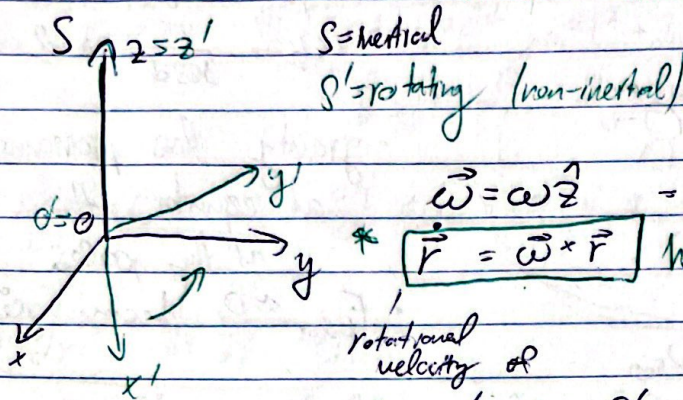 S
z=z'
S=inertial
S'=rotating (non-inertial)
y'
ω⃗ = ω ẑ =
o'=o
y
* ṙ⃗ = ω⃗ × r⃗
x
x'
rotational
velocity of